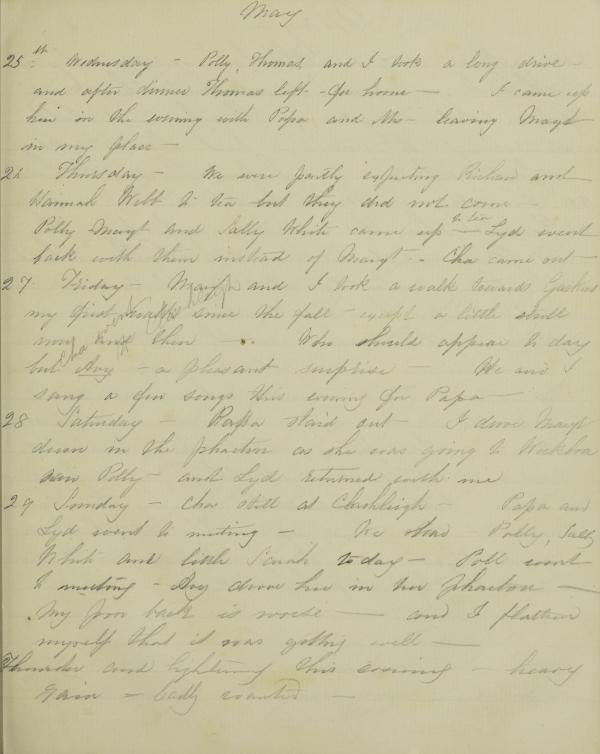 May
25th Wednesday - Polly, Thomas, and I took a long drive -
and after dinner Thomas left - for home - I came up
here in the evening with Papa and Ms - leaving Margt
in my place -
26 Thursday - We were partly expecting Richard and
Hannah Webb to tea but they did not come -
Polly Margt and Sally White came up to tea - Lyd went
back with them instead of Margt - Cha came out -
27 Friday - Margt and I took a walk towards Gaskins
my first walk since the fall - except a little stroll
now and then - Who should appear to day
but Avy - a pleasant surprise - We and I
sang a few songs this evening for Papa -
Cha went
28 Saturday - Papa staid out - I drove Margt
down in the phaeton as she was going to
saw Polly - and Lyd returned with me
29 Sunday - Cha still at - Papa and
Lyd went to meeting - We had Polly, Sally
White and little Sarah today - Poll went
to meeting - Avy drove her in her phaeton -
My poor back is worse - and I flattered
myself that it was getting well -
Thunder and lightening this evening - heavy
rain - badly wanted -